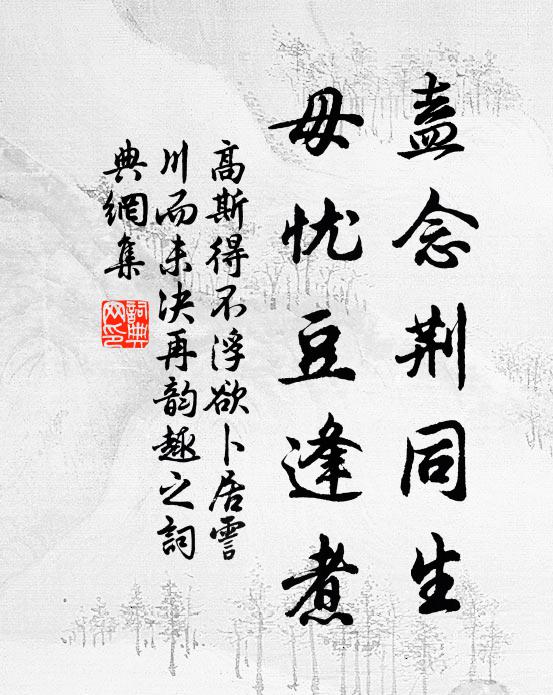 盍念荆同生
毋忧豆逢煮
高斯得不浮欲卜居霅
川而未决再韵趣之詞
典網集
詞典
网印